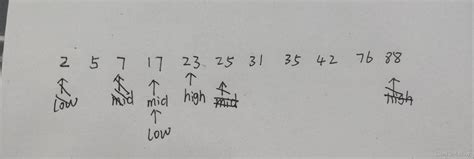 2 5 7 17 23 25 31 35 42 76 88
low mid mid high mid high
low